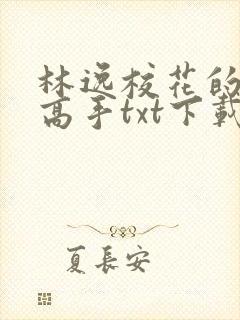 林逸校花的
高手txt下載
夏長安